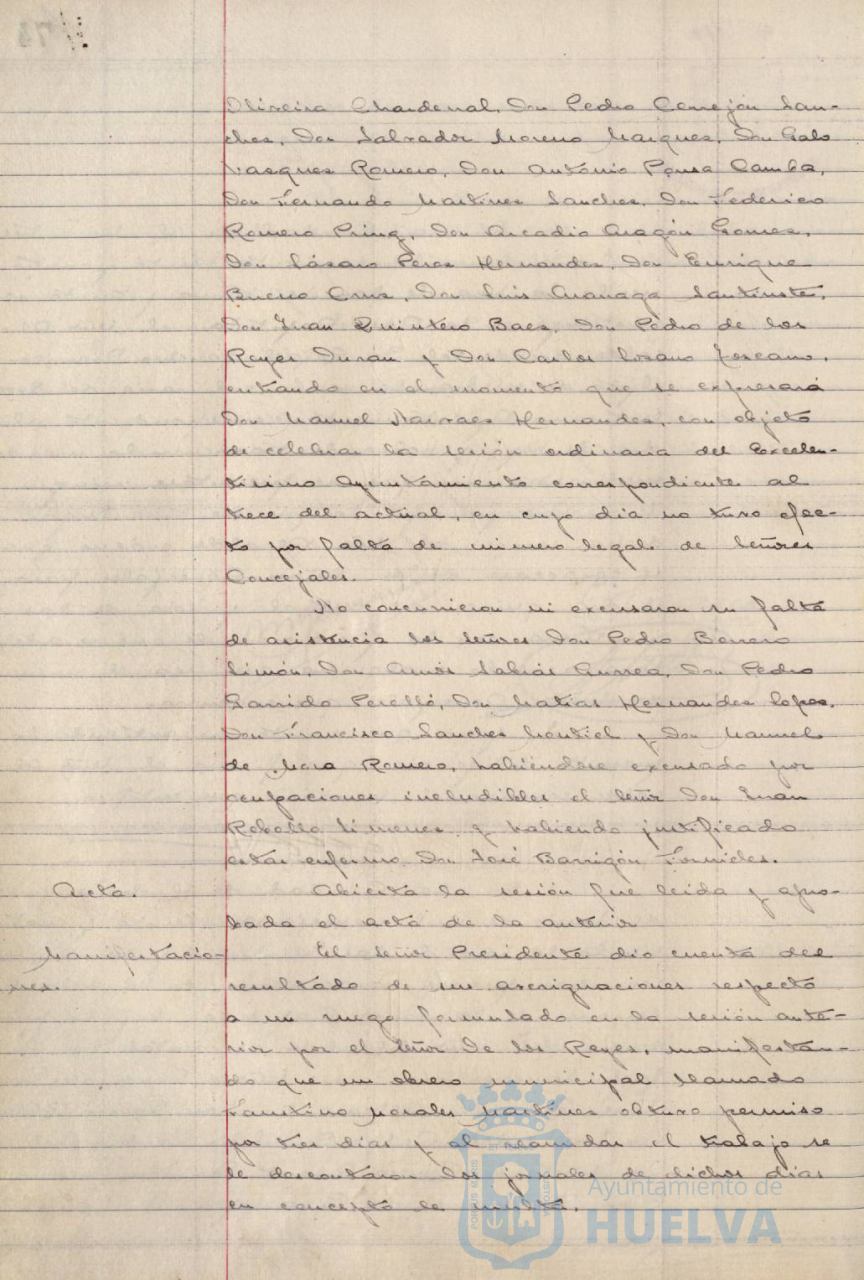 Oliveira Chardenal, Don Pedro Cerrejón San-
ches, Don Salvador Moreno Marques, Don Galo
Vasques Romero, Don Antonio Ponsa Camba,
Don Fernando Martines Sanches, Don Federico
Romero Prinz, Don Arcadio Aragón Gomes,
Don Lásaro Peres Hernandes, Don Enrique
Bueno Crus, Don Luis Aranaga Santiuste,
Don Juan Quintero Baes, Don Pedro de los
Reyes Durán y Don Carlos Losano Toscano,
entrando en el momento que se expresará
Don Manuel Narvaes Hernandes, con objeto
de celebrar la sesión ordinaria del Excelen-
tisimo Ayuntamiento correspondiente al
trece del actual, en cuyo dia no tuvo efec-
to por falta de número legal de Señores
Concejales.
No concurrieron ni excusaron su falta
de asistencia los Señores Don Pedro Borrero
Limón, Don Amós Sabrás Gurrea, Don Pedro
Garrido Perelló, Don Matias Hernandes Lopes,
Don Francisco Sanches Montiel y Don Manuel
de Mora Romero, habiéndose excusado por
ocupaciones ineludibles el Señor Don Juan
Rebollo Jimenes y habiendo justificado
estar enfermo Don José Barrigón Fornieles.
Acta.
Abierta la sesión fue leida y apro-
bada el acta de la anterior
Manifestacio-
nes.
El Señor Presidente dio cuenta del
resultado de sus averiguaciones respecto
a un ruego formulado en la sesión ante-
rior por el Señor De los Reyes, manifestan-
do que un obrero municipal llamado
Faustino Morales Martines obtuvo permiso
por tres dias y al reanudar el trabajo se
le descontaron los jornales de dichos dias
en concepto de multa.
Ayuntamiento de
HUELVA